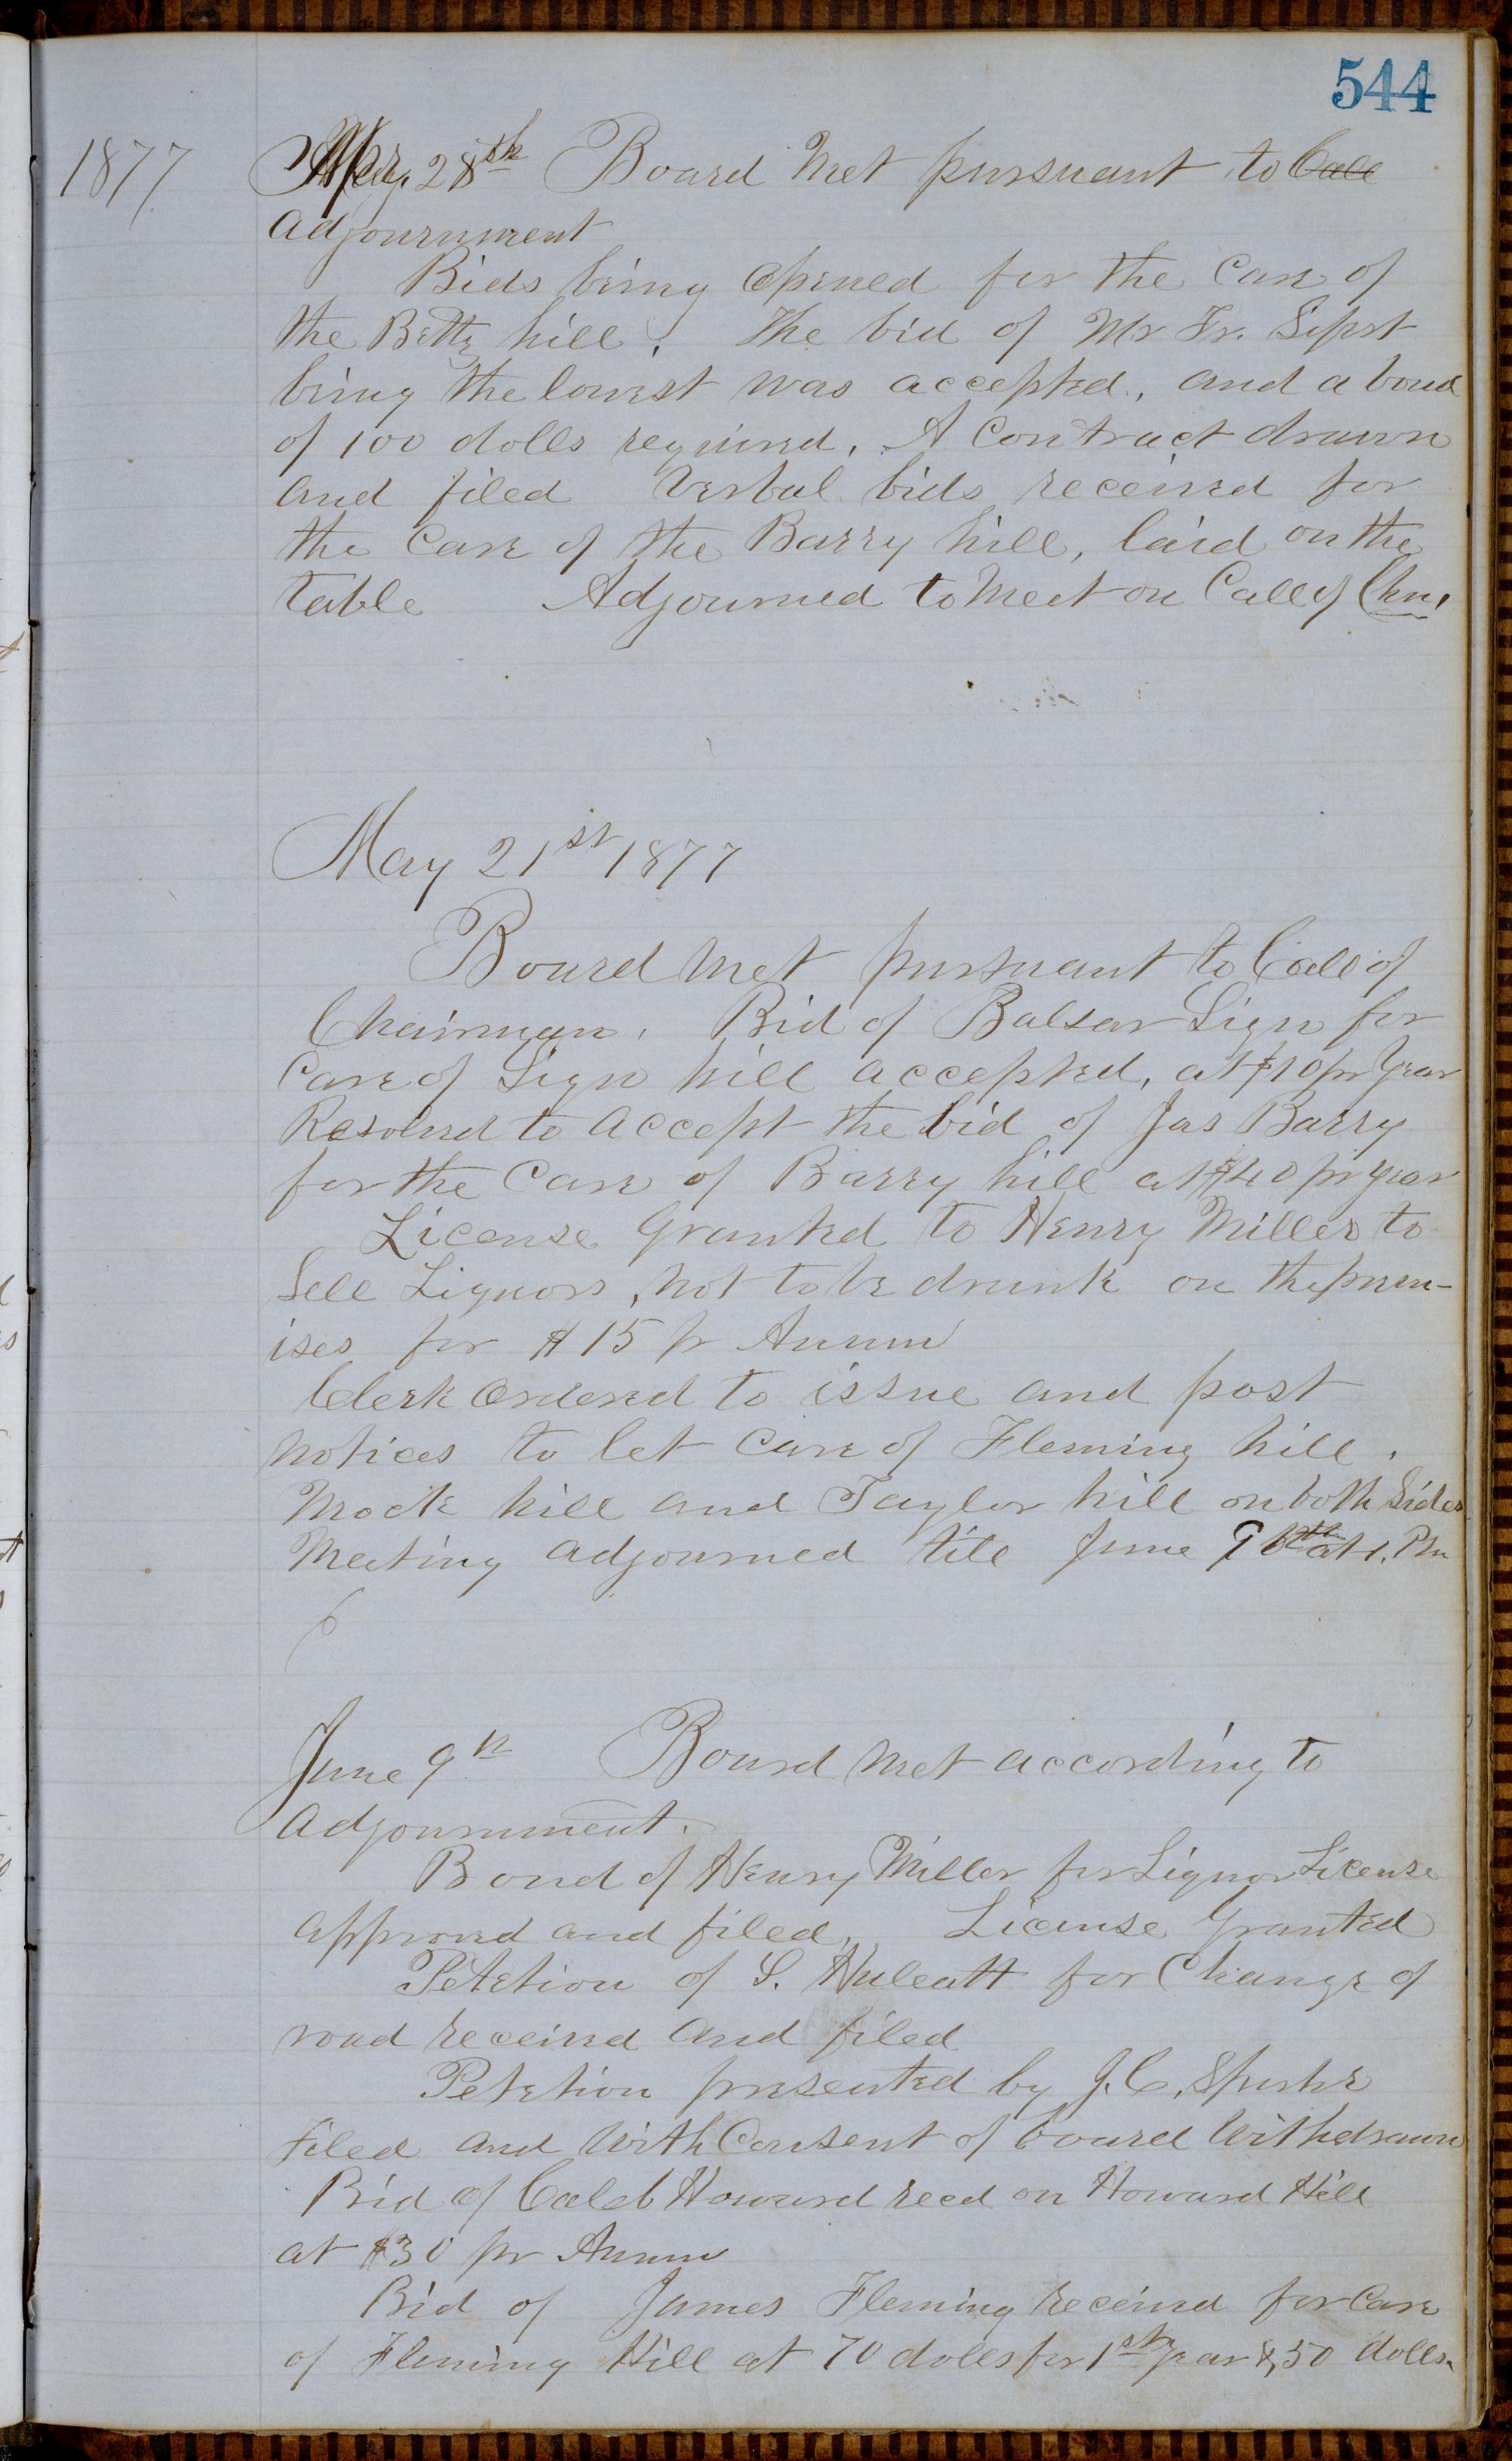 544
1877 Apr. 28th Board Met pursuant to Call
adjournment
Bids being opened for the Care of
the Betty hill. The bid of Mr Fr. Sipst
being the lowest was accepted, and a bond
of 100 dolls required, A Contract drawn
and filed Verbal bids received for
the Care of the Barry hill, laid on the
table Adjourned to Meet on Call of Chn.
May 21st 1877
Board Met pursuant to Call of
Chairman. Bid of Balsar Sign for
Care of Sign hill accepted, at $10 pr Year
Resolved to accept the bid of Jas Barry
for the Care of Barry hill at $40 pr year
License Granted to Henry Miller to
Sell Liquors, Not to be drunk on the prem-
ises for $15 pr Annum
Clerk Ordered to issue and post
Notices to let Care of Fleming hill.
Mock hill and Taylor hill on both Sides
Meeting adjourned till June 9th at 1. Pm
June 9th Board Met according to
adjournment.
Bond of Henry Miller for Liquor License
approved and filed, License Granted
Petetion of S. Huleatt for Change of
road received and filed
Petetion presented by J. C. Spuhr
filed and With Consent of board Withdrawn
Bid of Caleb Howard recd on Howard Hill
at $30 pr Annum
Bid of James Fleming received for Care
of Fleming Hill at 70 dolls for 1st year & 50 dolls.